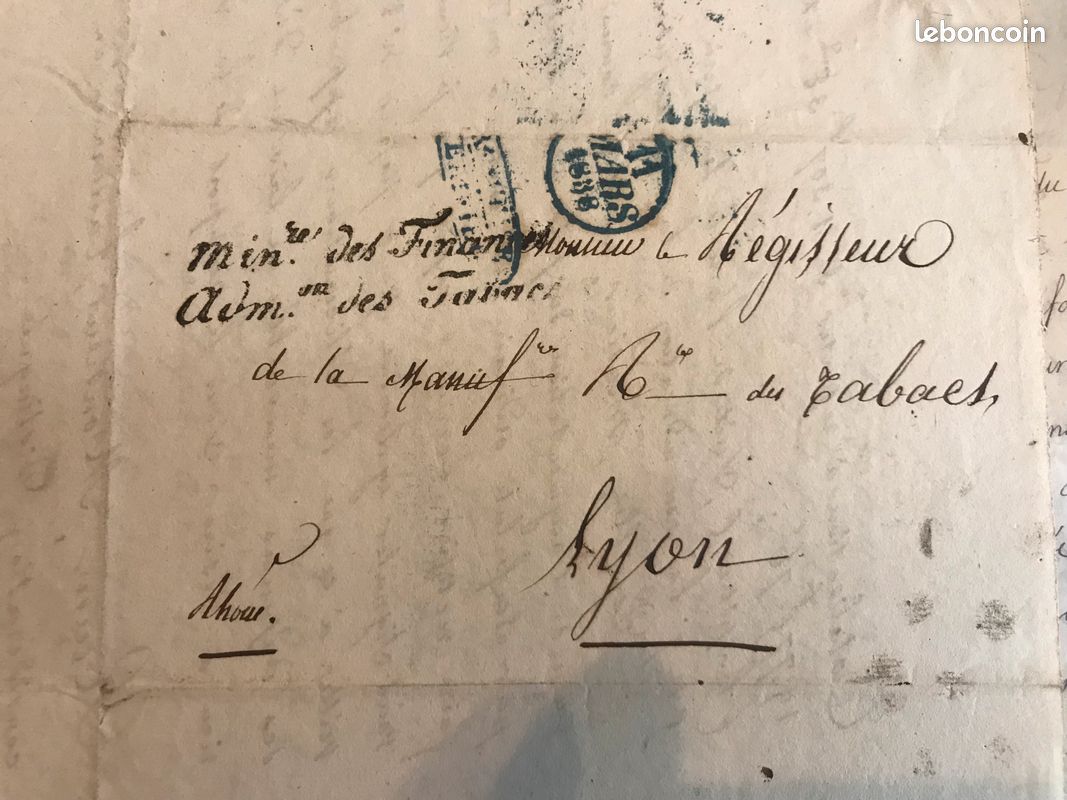 leboncoin
11
MARS
1838
Min.re des Finances Monsieur le Régisseur
Adm.on des Tabacs
de la Manuf.re Rle des Tabacs,
Lyon
Rhône.